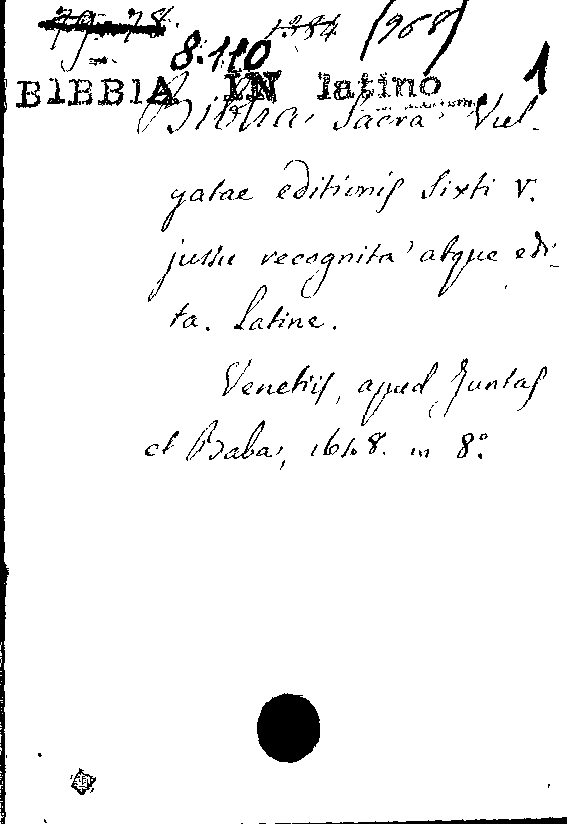 79. 78. 1384 (968)
8.110 1
BIBBIA IN latino
Biblia Sacra Vul-
gatae editionis Sixti V.
jussu recognita atque edi-
ta. Latine.
Venetiis, apud Juntas
et Baba, 1648. in 8°.